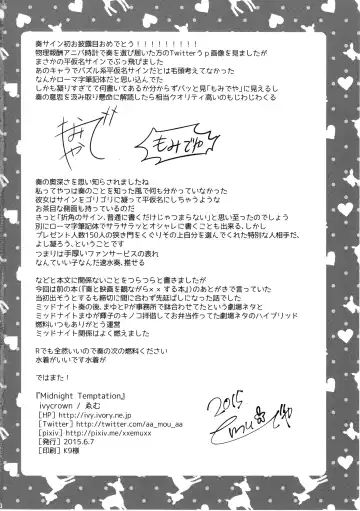 奏サイン初お披露目おめでとう！！！！！！！！！
物理報酬アニバ時計で奏を選び届いた方のTwitterうｐ画像を見ましたが
まさかの平仮名サインでぶっ飛びました
あのキャラでパズル系平仮名サインだとは毛頭考えてなかった
なんかローマ字筆記体だと思い込んでた
しかも凝りすぎてて何書いてあるか分からずパッと見「もみでや」に見えるし
奏の意思を汲み取り懸命に解読したら相当クオリティ高いのもじわじわくる
もみやで
もみでや
奏の奥深さを思い知らされましたね
私ってやつは奏のことを知った風で何も分かっていなかった
彼女はサインをゴリゴリに凝って平仮名にしちゃうような
お茶目な側面も持っているのだ
きっと「折角のサイン、普通に書くだけじゃつまらない」と思い至ったのでしょう
別にローマ字筆記体でサラサラッとオシャレに書くことも出来る、しかし
プレゼント人数150人の狭き門をくぐりその上自分を選んでくれた特別な人相手だ、
よし凝ろう、ということです
つまりは手厚いファンサービスの表れ
なんていい子なんだ速水奏、推せる
などと本文に関係ないことをつらつらと書きましたが
今回は前の本(『奏と映画を観ながら××する本』)のあとがきで言っていた
当初出そうとするも締切に間に合わず先延ばしになった話でした
ミッドナイト奏の後、まゆとPが事務所で詰合わせてたという劇場ネタと
ミッドナイトまゆが輝子のキノコ拝借してお弁当作ってた劇場ネタのハイブリッド
燃料いつもありがとう運営
ミッドナイト関係はよく燃えました
Rでも全然いいので奏の次の燃料ください
水着がいいです水着が
ではまた！
『Midnight Temptation』
ivycrown / ゑむ
[HP] http://ivy.ivory.ne.jp
[Twitter] http://twitter.com/aa_mou_aa
[pixiv] http://pixiv.me/xxemuxx
[発行] 2015.6.7
[印刷] K9様
2015